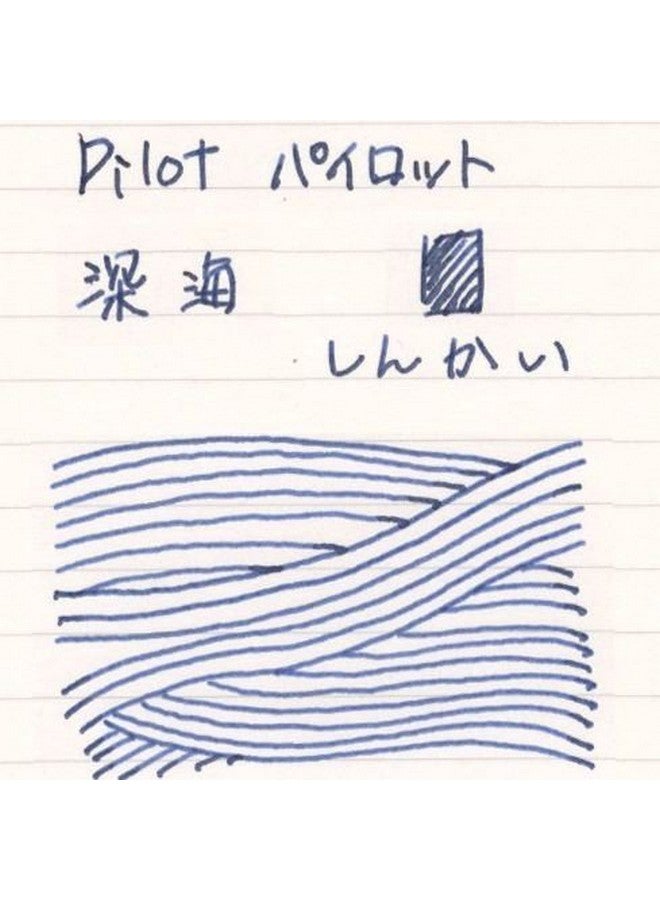 Pilot パイロット
深海
しんかい